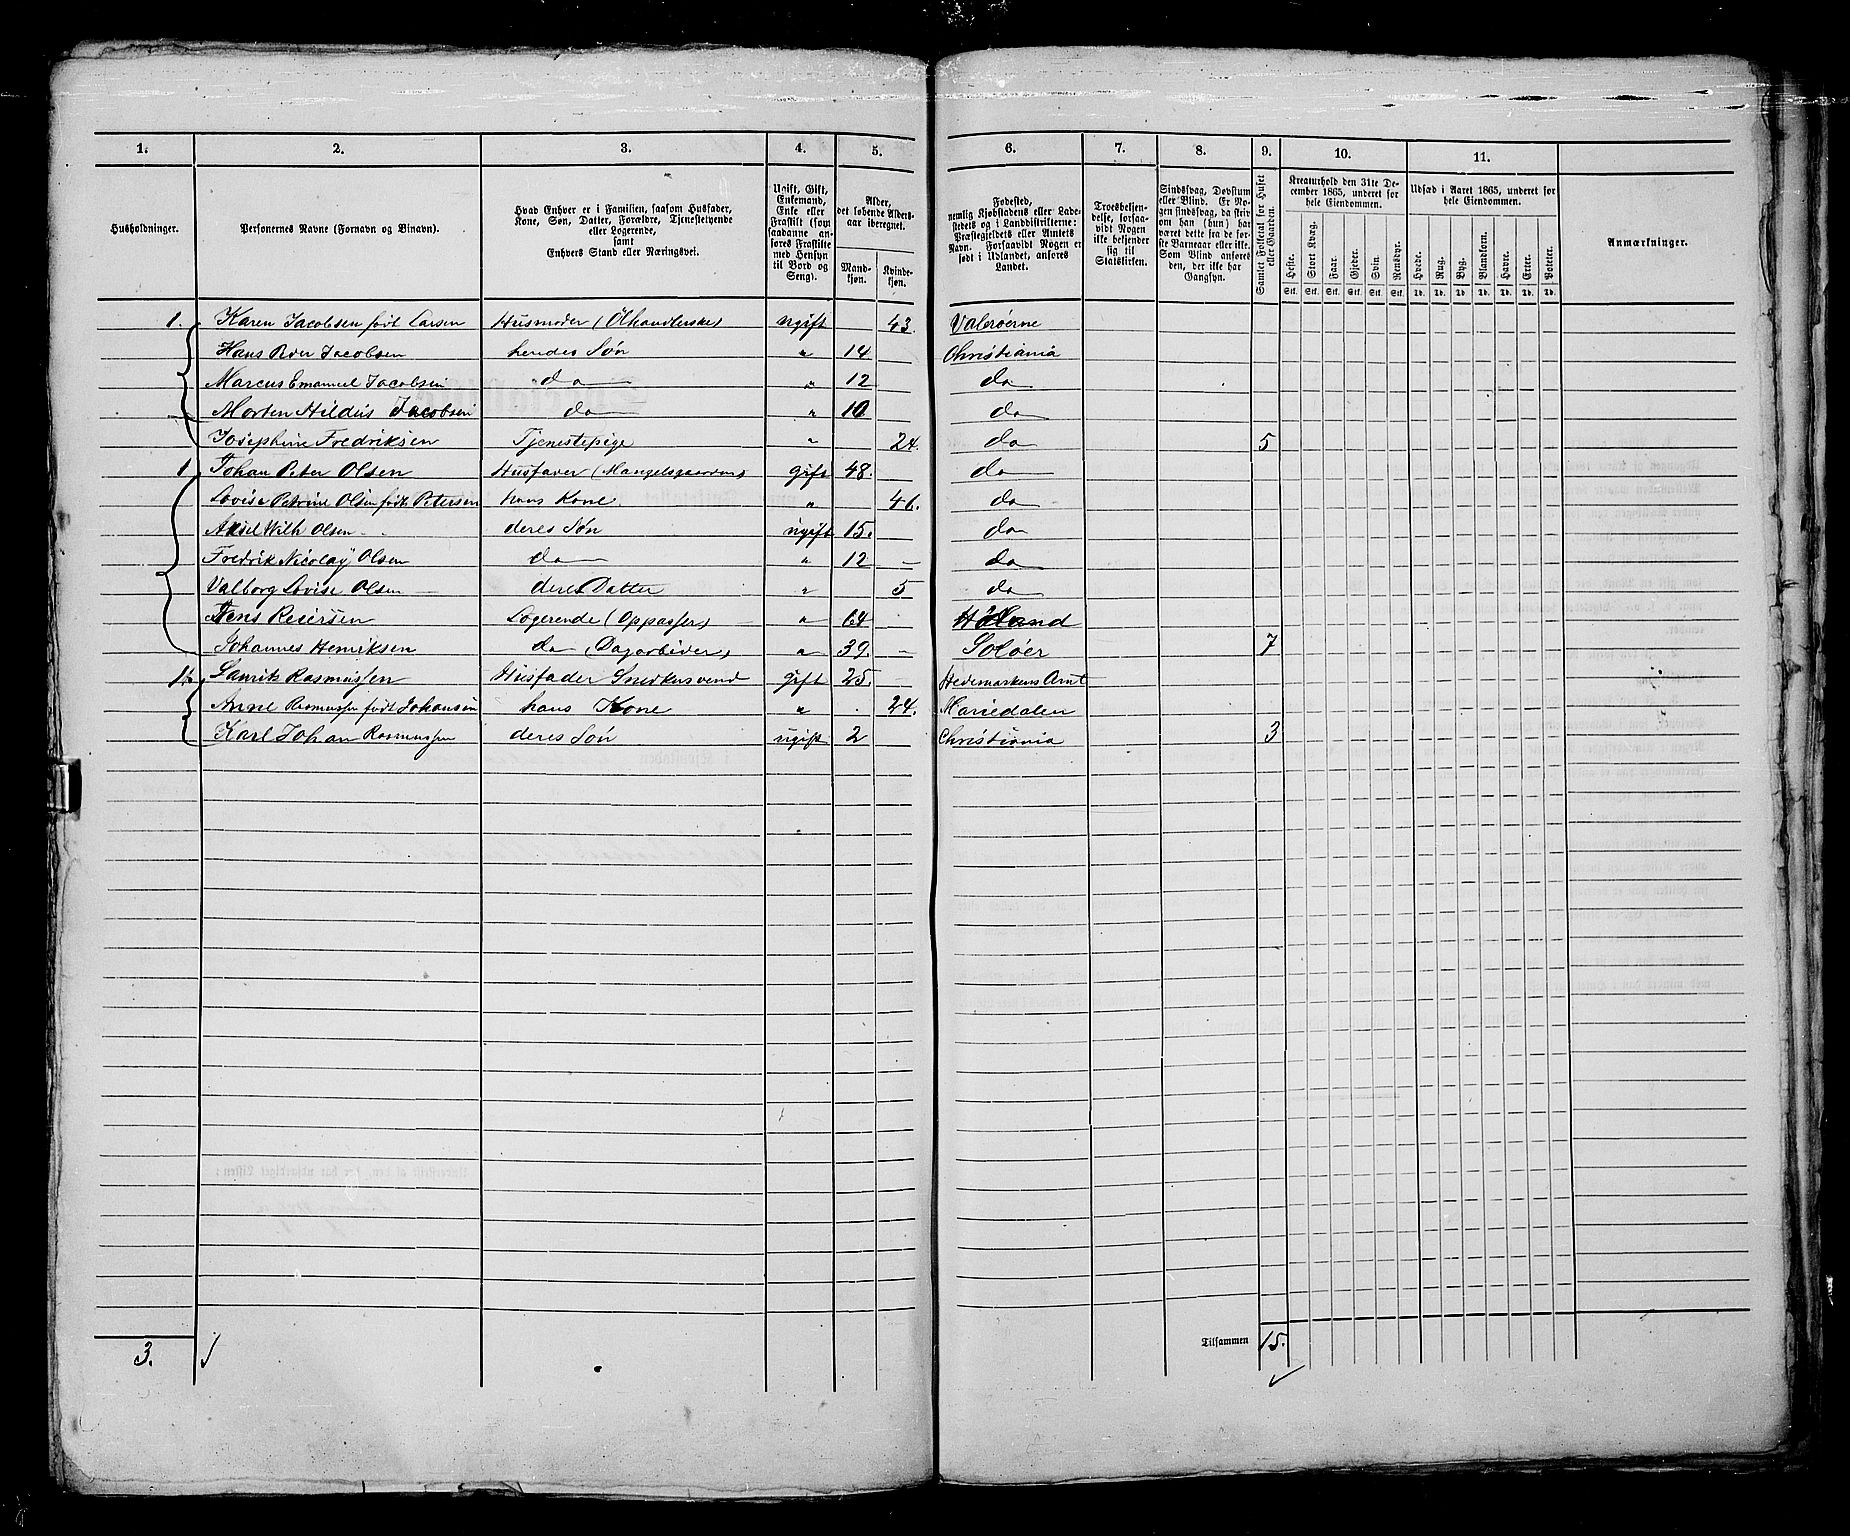 1. 2. 3. 4. 5. 6. 7. 8. 9. 10. 11.
Husholdninger.
Personernes Navne (Fornavn og Binavn).
Hvad Enhver er i Familien, saasom Husfader,
Kone, Søn, Datter, Forældre, Tjenestetyende
eller Logerende,
samt
Enhvers Stand eller Næringsvei.
Ugift, Gift,
Enkemand,
Enke eller
Fraskilt (som
saadanne an-
føres Fraskilte
med Hensyn
til Bord og
Seng).
Alder,
det løbende Alders-
aar iberegnet.
Mand-
kjøn.
Kvinde-
kjøn.
Fødested,
nemlig Kjøbstadens eller Lade-
stedets og i Landdistrikterne:
Præstegjeldets eller Amtets
Navn. Forsaavidt Nogen er
født i Udlandet, anføres
Landet.
Troesbekjen-
delse, forsaa-
vidt Nogen
ikke bekjender
sig til
Statskirken.
Sindssvag, Døvstum
eller Blind. Er No-
gen sindssvag, da skriv
om han (hun) har
været dette fra de før-
ste Barneaar eller ikke.
Som Blind ansøres
den, der ikke har
Gangsyn.
Samlet Folketal for Huset
eller Gaarden.
Kreaturhold den 31te De-
cember 1865, underet for
hele Eiendommen.
Heste. Stort Kvæg. Faar. Gjeder. Svin. Rensdyr.
Stk. Stk. Stk. Stk. Stk. Stk.
Udsæd i Aaret 1865, underet for
hele Eiendommen.
Hvede. Rug. Byg. Blandkorn. Havre. Erter. Poteter.
Td. Td. Td. Td. Td. Td. Td.
Anmærkninger.
1. Karen Jacobsen født Larsen Husmoder (Ølhandlerske) ugift 43. Valerøerne
Hans Jacobsen hendes Søn " 14 Christiania
Marcus Emanuel Jacobsen do " 12 do
Morten Jacobsen do " 10 do
Josephine Fredriksen Tjenestepige " 24. do 5
1 Johan Peter Olsen Husfader gift 48. do
Lovise Petrine Olsen født Petersen hans Kone " 46. do
Axel Wilh Olsen deres Søn ugift 15. do
Fredrik Nicolay Olsen do " 12 do
Valborg Lovise Olsen deres Datter " 5 do
Jens Logerende (Oppasser) " 64 Høland
Johannes Henriksen do (Dagarbeider) " 39. Soløer 7
1. Rasmussen Husfader Snedkersvend gift 25. Hedemarkens Amt
Anne Rasmussen født Johansen hans Kone " 24. Mariedalen
Karl Johan Rasmussen deres Søn ugift 2 Christiania 3
3.
Tilsammen 15.